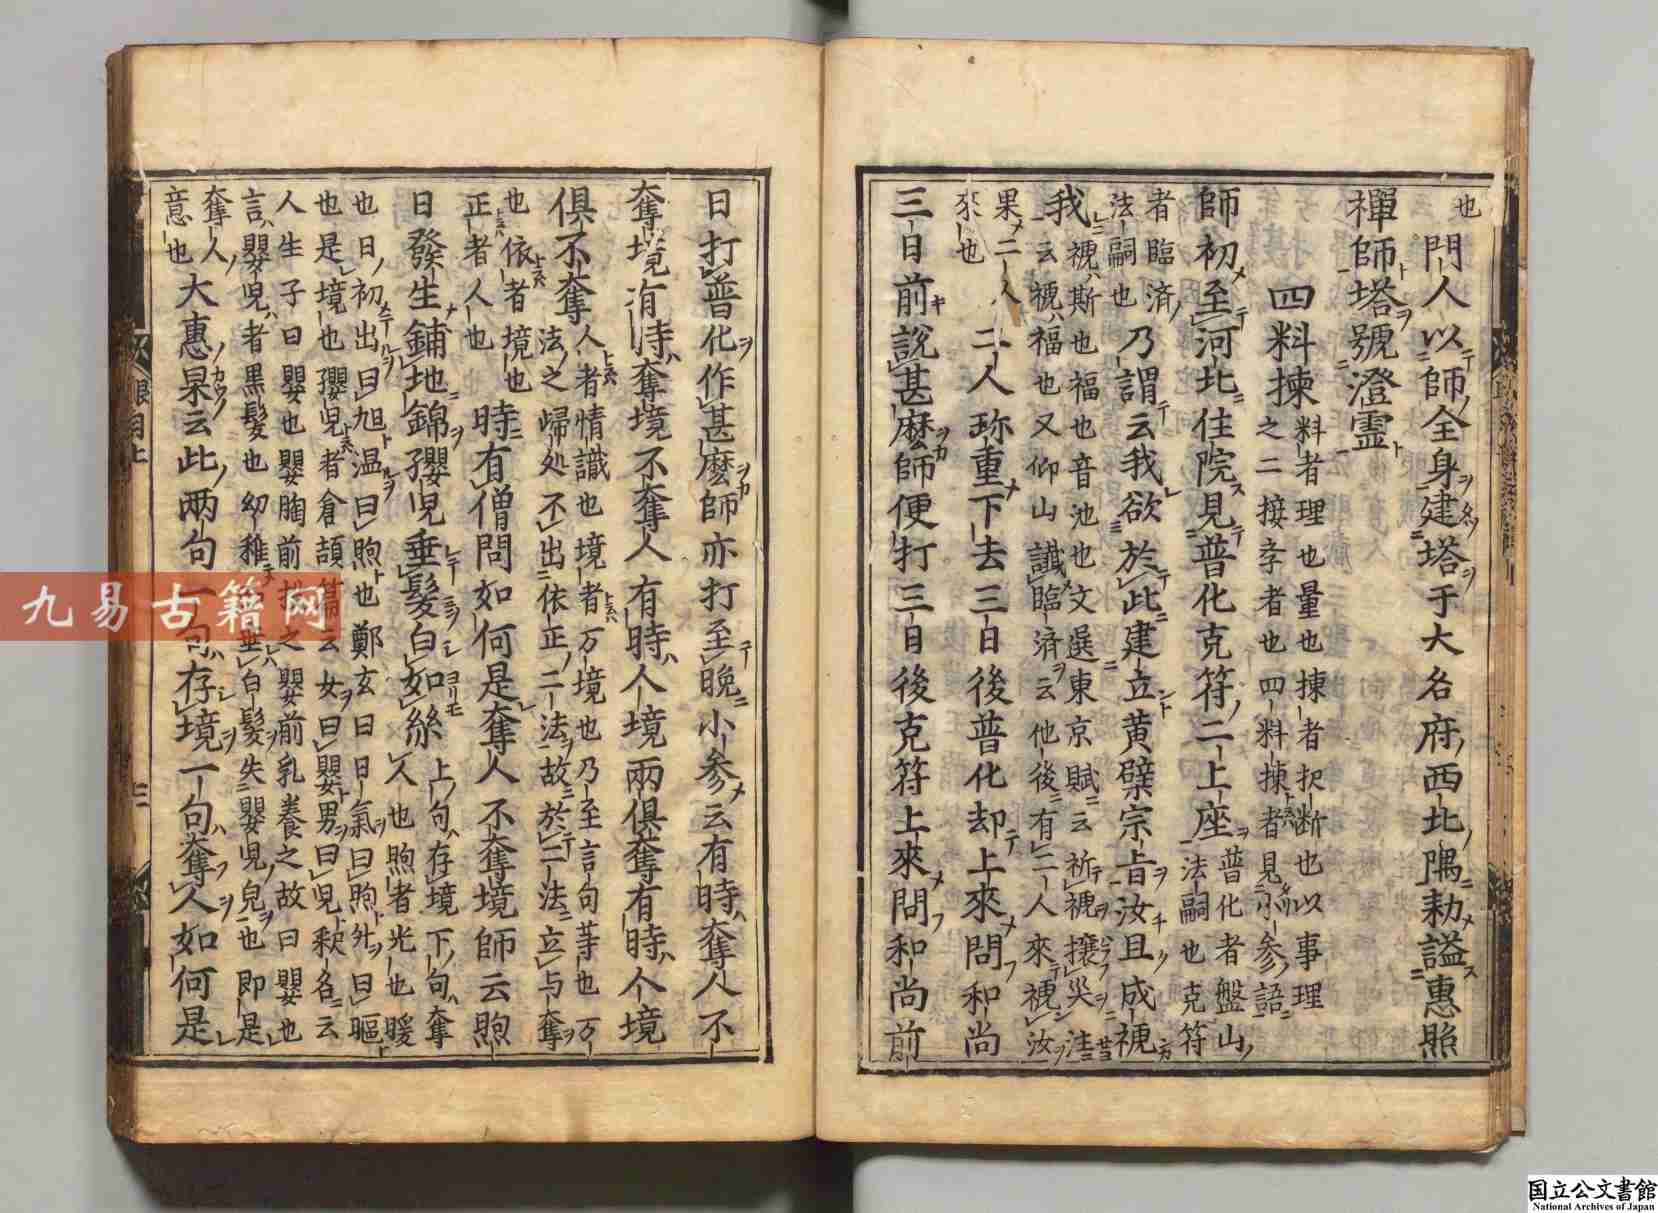 也門人以師全身建塔于大名府西北隅勅謚惠照
禪師塔號澄靈
四料揀料者理也量也揀者択断也以事理
之二接孝者也四料揀者見小参語
師初至河北住院見普化克符二上座普化者盤山
法嗣也克符
者臨済
法嗣也乃謂云我欲於此建立黄檗宗旨汝且成禠
我禠斯也福也音池也文選東京賦云祈禠攘災
一云禠福也又仰山讖臨済云他後有二人來禠汝
果二人
來也二人珎重下去三日後普化却上來問和尚
三日前説甚麽師便打三日後克符上來問和尚前
日打普化作甚麽師亦打至晩小参云有時奪人不
奪境有時奪境不奪人有時人境兩俱奪有時人境
俱不奪人者情識也境者万境也乃至言句等也万
法之歸処不出依正二法故於二法立与奪
也依者境也
正者人也時有僧問如何是奪人不奪境師云煦
日發生鋪地錦孾児垂髪白如絲上句存境下句奪
人也煦者光也暖
也日初出曰旭温曰煦也鄭玄曰日氣曰煦外曰
也是境也孾児者倉頡篇云女曰嬰男曰児釈名云
人生子曰嬰也嬰胸前之嬰前乳養之故曰嬰也
言嬰児者黒髪也幼稚垂白髪失嬰児皃也即是
奪人
意也大惠杲云此兩句一句存境一句奪人如何是
眼目上
九易古籍网
国立公文書館
National Archives of Japan